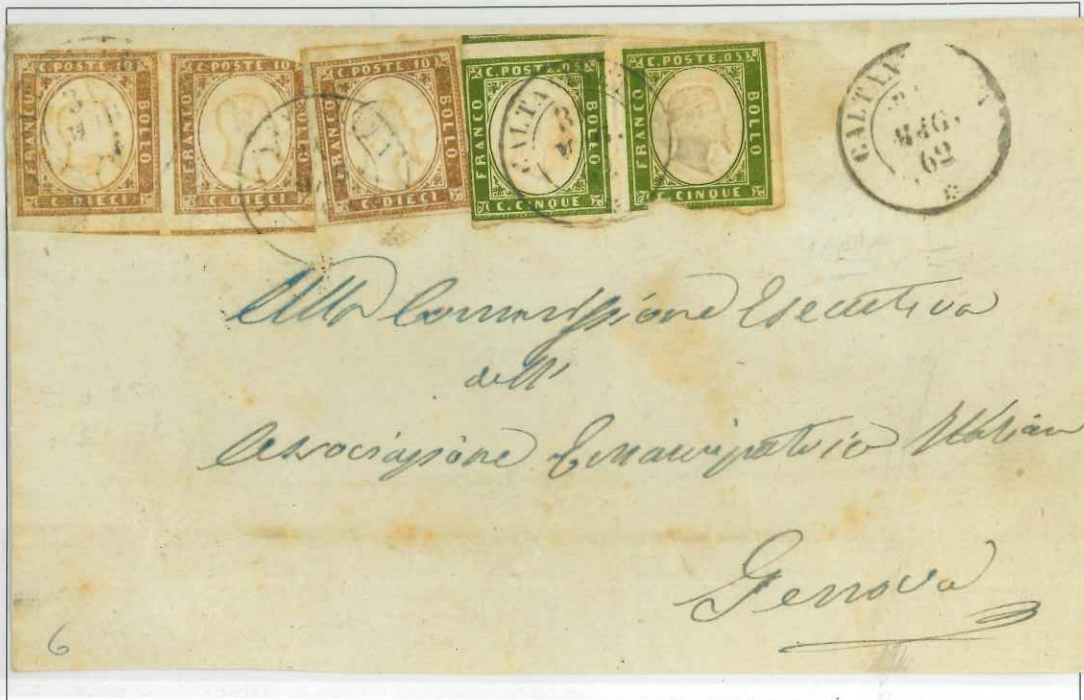 C. POSTE. 10
FRANCO
BOLLO
C. DIECI
C. POSTE 10
FRANCO
BOLLO
C. DIECI
C. POSTE. 10
FRANCO
C. DIECI
C. POSTE. 05
FRANCO
BOLLO
C. CINQUE
C. POSTE. 05
FRANCO
BOLLO
CINQUE
CALTA
MAG.
62
Alla Commissione Esecutiva
dell'
Associazione Emancipatrice Italian
Genova
6